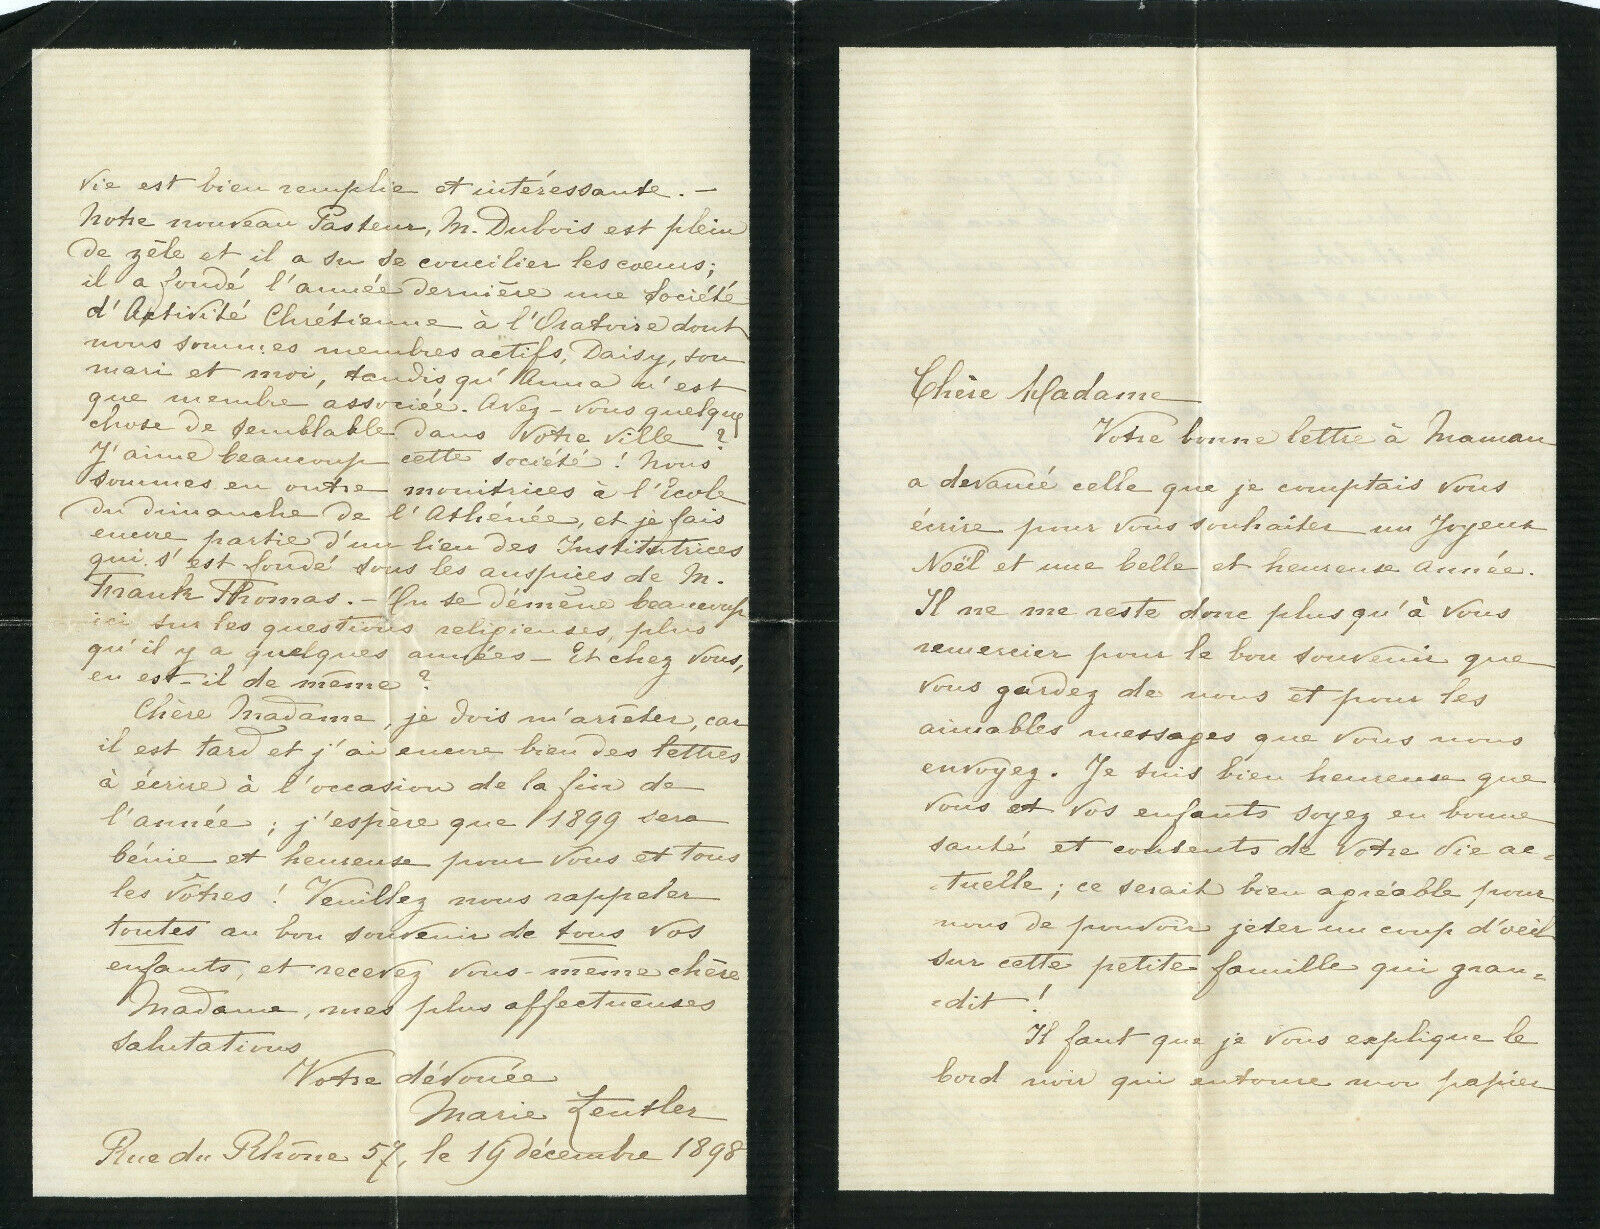 Chère Madame
Votre bonne lettre à Maman
a devancé celle que je comptais vous
écrire pour vous souhaiter un Joyeux
Noël et une belle et heureuse Année.
Il ne me reste donc plus qu'à vous
remercier pour le bon souvenir que
vous gardez de nous et pour les
aimables messages que vous nous
envoyez. Je suis bien heureuse que
vous et vos enfants soyez en bonne
santé et contents de votre vie ac=
=tuelle ; ce serait bien agréable pour
nous de pouvoir jeter un coup d'œil
sur cette petite famille qui gran=
=dit !
Il faut que je vous explique le
bord noir qui entoure mon papier
vie est bien remplie et intéressante. –
Notre nouveau Pasteur, M. Dubois est plein
de zèle et il a su se concilier les coeurs ;
il a fondé l'année dernière une Société
d'Activité Chrétienne à l'Oratoire dont
nous sommes membres actifs, Daisy, son
mari et moi, tandis qu'Anna n'est
que membre associée. Avez-vous quelque
chose de semblable dans votre ville ?
J'aime beaucoup cette société ! Nous
sommes en outre monitrices à l'Ecole
du dimanche de l'Athénée, et je fais
encore partie d'un lien des Institutrices
qui s'est fondé sous les auspices de M.
Frank Thomas. – On se démène beaucoup
ici sur les questions religieuses, plus
qu'il y a quelques années – Et chez vous,
en est-il de même ?
Chère Madame, je dois m'arrêter, car
il est tard et j'ai encore bien des lettres
à écrire à l'occasion de la fin de
l'année ; j'espère que 1899 sera
bénie et heureuse pour vous et tous
les vôtres ! Veuillez nous rappeler
toutes au bon souvenir de tous vos
enfants, et recevez vous-même chère
Madame, mes plus affectueuses
salutations
Votre dévouée
Marie
Rue du Rhône 57, le 19 décembre 1898